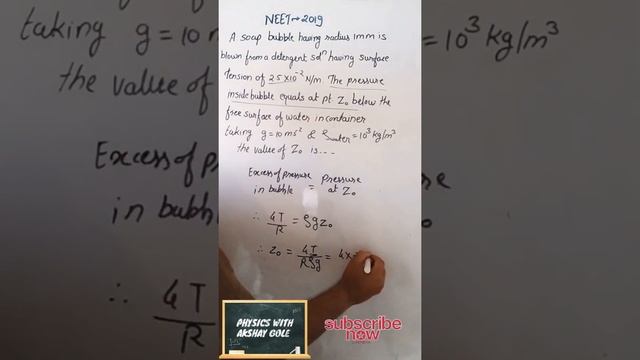 NEET→2019
A soap bubble having radius 1mm is
blown from a detergent solⁿ having surface
Tension of 2.5×10⁻² N/m. The pressure
inside bubble equals at pt. Z₀ below the
free surface of water in container
taking g=10ms² & ρwater=10³kg/m³
the value of Z₀ is....
Excess of pressure in bubble = Pressure at Z₀
∴ 4T/R = ρgz₀
∴ z₀ = 4T/Rρg = 4×
PHYSICS WITH
AKSHAY GOLE
subscribe
now
taking g=10 m
the value of
Excess of p
in bubb
∴ 4T/R
=10³ kg/m³
ressure
Z₀